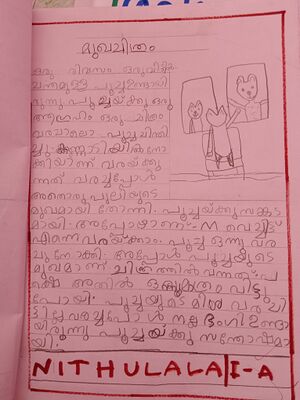 മുഖചിത്രം
ഒരു ദിവസം ഒരു വീട്ടിൽ
പൂച്ച ഉണ്ടായി
രുന്നു പൂച്ചയ്ക്കു ഒരു
ആഗ്രഹം ഒരു ചിത്രം
വരച്ചാലൊ പൂച്ച ചിന്തി
ച്ചു കണ്ണാടിയിൽ നോ
ക്കിയാണ് വരയ്ക്കു
ന്നത് വരച്ചപ്പോൾ
അതൊരു പുലിയുടെ
മുഖമായി തോന്നി പൂച്ചയ്ക്കു സങ്കട
മായി അപ്പോഴാണ്
വരയ്ക്കാം പൂച്ച ഒന്നു വര
ച്ചു നോക്കി അപ്പോൾ പൂച്ചയുടെ
മുഖമാണ് ചിത്രത്തിൽ വന്നത് പ
ക്ഷെ അതിൽ ഒരു വിട്ടു
പോയി പൂച്ചയുടെ മീശ വരച്ചി
ട്ടില്ല വരച്ചപ്പോൾ നല്ല ഭംഗി ഉണ്ടാ
യിരുന്നു പൂച്ചയ്ക്കു സന്തോഷമാ
യി
NITHULALA I-A